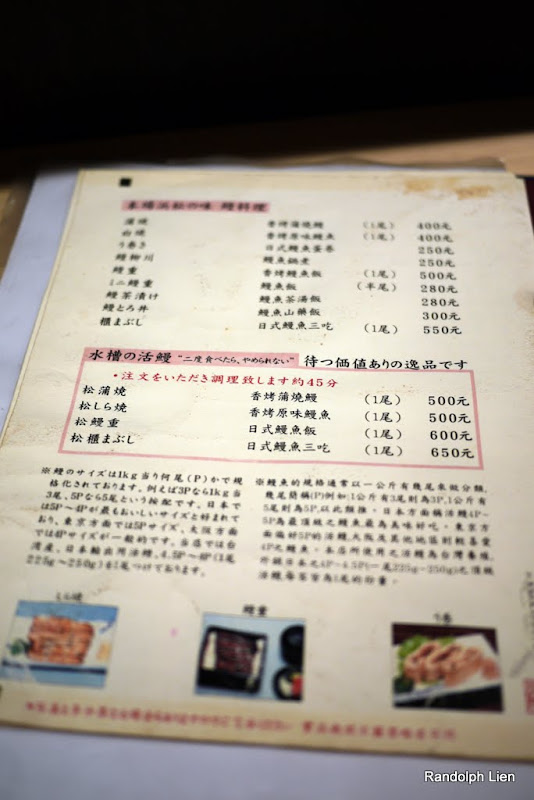 本場浜松の味 鰻料理
蒲焼 香烤蒲燒鰻 (1尾) 400元
白焼 香烤原味鰻魚 (1尾) 400元
う巻き 日式鰻魚蛋卷 250元
鰻柳川 鰻魚鍋煮 250元
鰻重 香烤鰻魚飯 (1尾) 500元
ミニ鰻重 鰻魚飯 (半尾) 280元
鰻茶漬け 鰻魚茶湯飯 280元
鰻とろ丼 鰻魚山藥飯 300元
櫃まぶし 日式鰻魚三吃 (1尾) 550元
水槽の活鰻 "二度食べたら、やめられない" 待つ価値ありの逸品です
・注文をいただき調理致します約45分
松蒲焼 香烤蒲燒鰻 (1尾) 500元
松しら焼 香烤原味鰻魚 (1尾) 500元
松鰻重 日式鰻魚飯 (1尾) 600元
松櫃まぶし 日式鰻魚三吃 (1尾) 650元
※鰻のサイズは1kg当り何尾(P)かで規
格化されております。例えば3Pなら1kg当
3尾、5Pなら5尾という按配です。日本で
は5P〜4Pが最もおいしいサイズと好まれて
おり、東京方面では5Pサイズ、大阪方面
では4Pサイズが一般的です。当店では台
湾産、日本輸出用活鰻、4.5P〜4P(1尾
225g〜250g)を1尾づけております。
※鰻魚的規格通常以一公斤有幾尾來做分類,
幾尾簡稱(P)例如:1公斤有3尾則為3P,1公斤有
5尾則為5P,以此類推。日本方面偏活鰻4P-
5P為最頂級之鰻魚最為美味好吃,東京方
面偏好5P的活鰻,大阪及其他地區則較喜愛
4P之鰻魚。本店所使用之活鰻為台灣養殖,
外銷日本之4P-4.5P(一尾225g-250g)之頂級
活鰻,每客皆為1尾的份量。
しら焼
鰻重
う巻
Randolph Lien